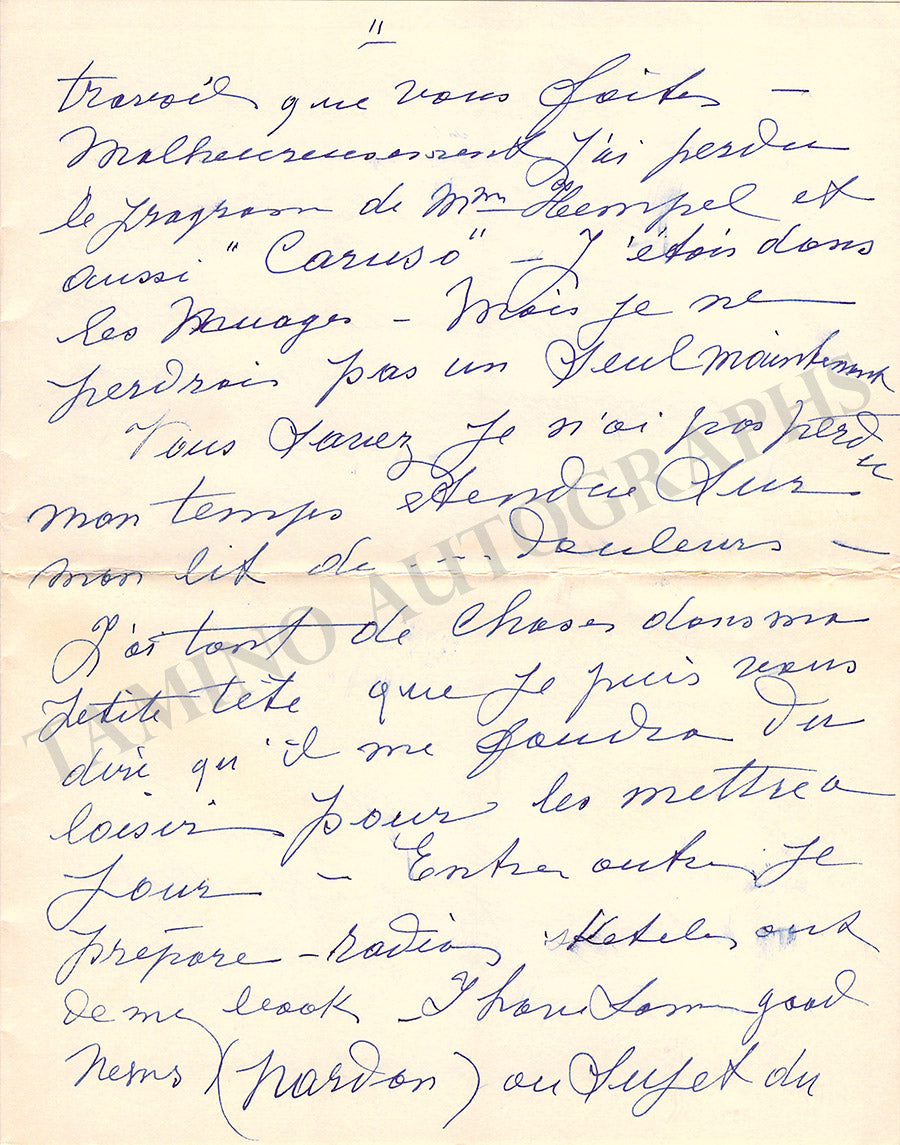 "
travail que vous faites –
Malheureusement J'ai perdu
le program de Mme Hempel et
aussi "Caruso" – J'étais dans
les Nuages – Mais je ne
perdrais pas un Seul maintenant
Vous Savez Je n'ai pas perdu
mon temps étendue Sur
mon lit de --- douleurs –
J'ai tant de Choses dans ma
petite tête que Je puis vous
dire qu'il me faudra du
loisir pour les mettre a
Jour – Entre autre, Je
prépare – radio Sketches out
de my book – I have Some good
News (pardon) au Sujet du
TAMINO AUTOGRAPHS